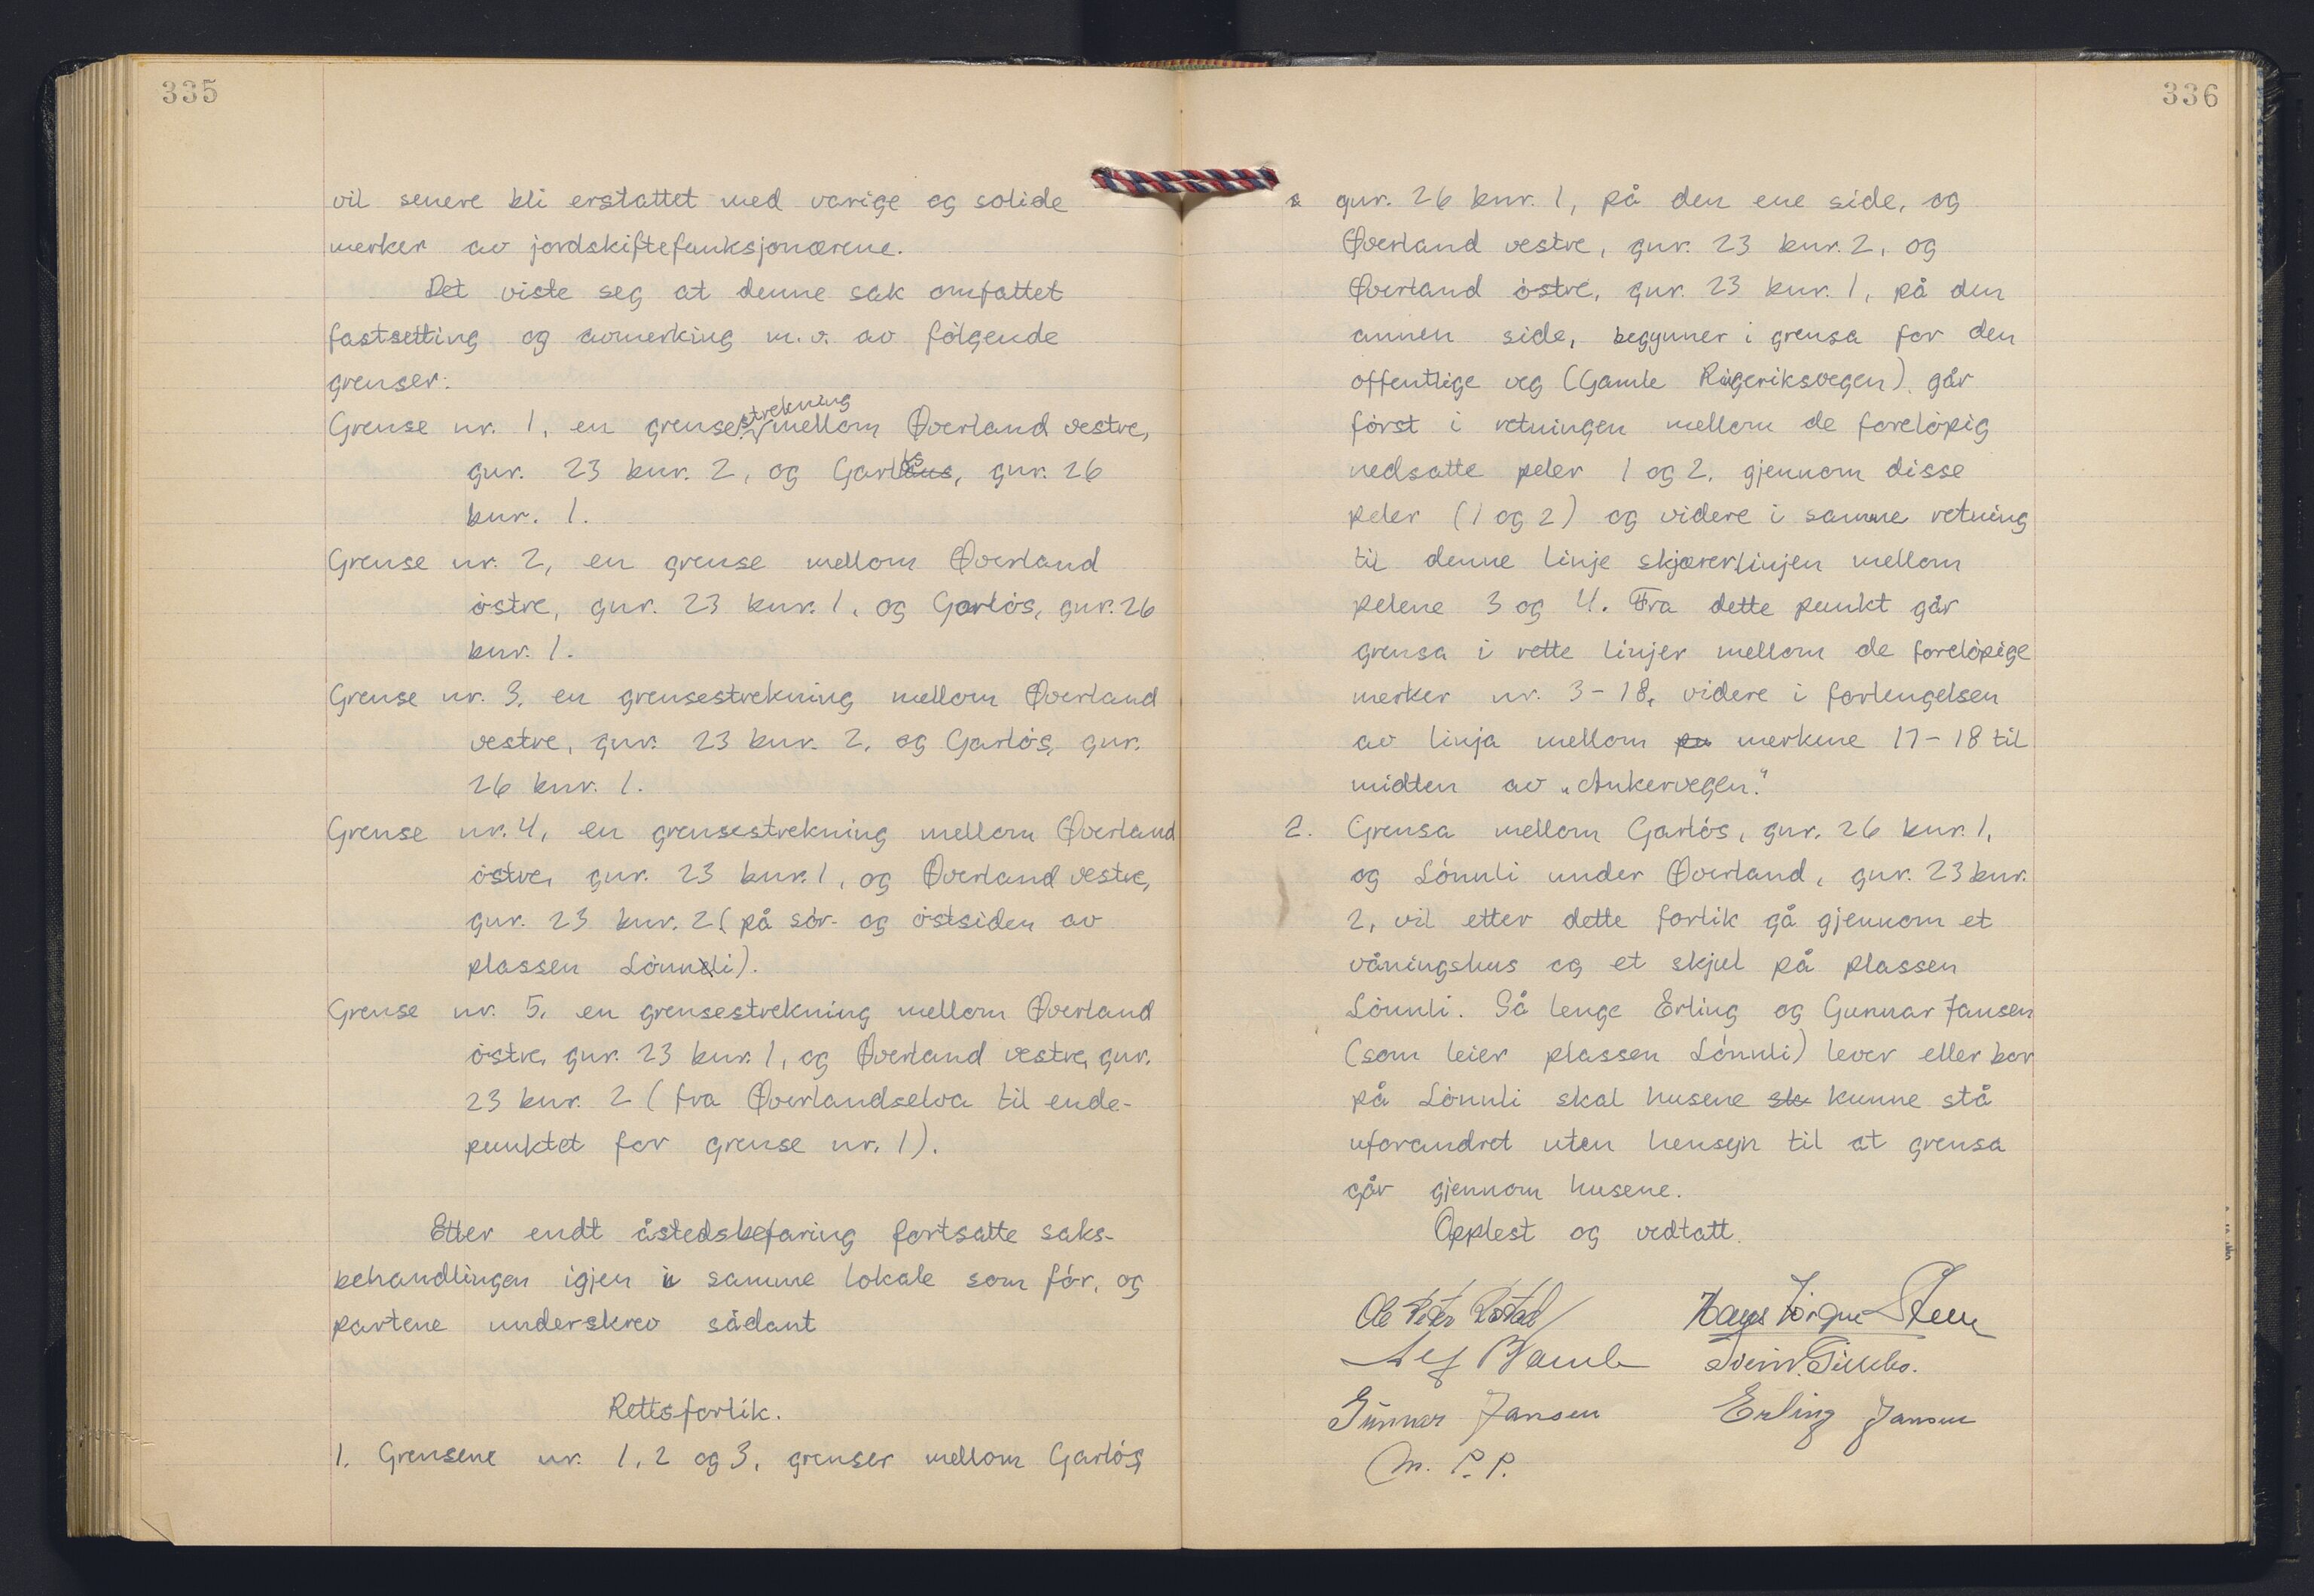 335
vil senere bli erstattet med varige og solide
merker av jordskiftefunksjonærene.
Det viste seg at denne sak omfattet
fastsetting og avmerking m.v. av følgende
grenser:
Grense nr. 1, en grensestrekning mellom Øverland vestre,
gnr. 23 bnr. 2, og Garløs, gnr. 26
bnr. 1.
Grense nr. 2, en grense mellom Øverland
østre, gnr. 23 bnr. 1, og Garløs, gnr. 26
bnr. 1.
Grense nr. 3, en grensestrekning mellom Øverland
vestre, gnr. 23 bnr. 2, og Garløs, gnr.
26 bnr. 1.
Grense nr. 4, en grensestrekning mellom Øverland
østre, gnr. 23 bnr. 1, og Øverland vestre,
gnr. 23 bnr. 2 (på sør- og østsiden av
plassen Lønnli).
Grense nr. 5, en grensestrekning mellom Øverland
østre, gnr. 23 bnr. 1, og Øverland vestre, gnr.
23 bnr. 2 (fra Øverlandselva til ende-
punktet for grense nr. 1).
Etter endt åstedsbefaring fortsatte saks-
behandlingen igjen i samme lokale som før, og
partene underskrev sådant
Rettsforlik.
1. Grensene nr. 1, 2 og 3, grenser mellom Garløs,
336
gnr. 26 bnr. 1, på den ene side, og
Øverland vestre, gnr. 23 bnr. 2, og
Øverland østre, gnr. 23 bnr. 1, på den
annen side, begynner i grensa for den
offentlige veg (Gamle Ringeriksvegen), går
først i retningen mellom de foreløpig
nedsatte peler 1 og 2, gjennom disse
peler (1 og 2) og videre i samme retning
til denne linje skjærer linjen mellom
pelene 3 og 4. Fra dette punkt går
grensa i rette linjer mellom de foreløpige
merker nr. 3-18, videre i forlengelsen
av linja mellom pu merkene 17-18 til
midten av „Ankervegen."
2. Grensa mellom Garløs, gnr. 26 bnr. 1,
og Lønnli under Øverland, gnr. 23 bnr.
2, vil etter dette forlik gå gjennom et
våningshus og et skjul på plassen
Lønnli. Så lenge Erling og Gunnar Jansen
(som leier plassen Lønnli) lever eller bor
på Lønnli skal husene sk kunne stå
uforandret uten hensyn til at grensa
går gjennom husene.
Opplest og vedtatt.
Ole Peter
Hans Jørgen
Gunnar Jansen Erling Jansen
m. P. P.